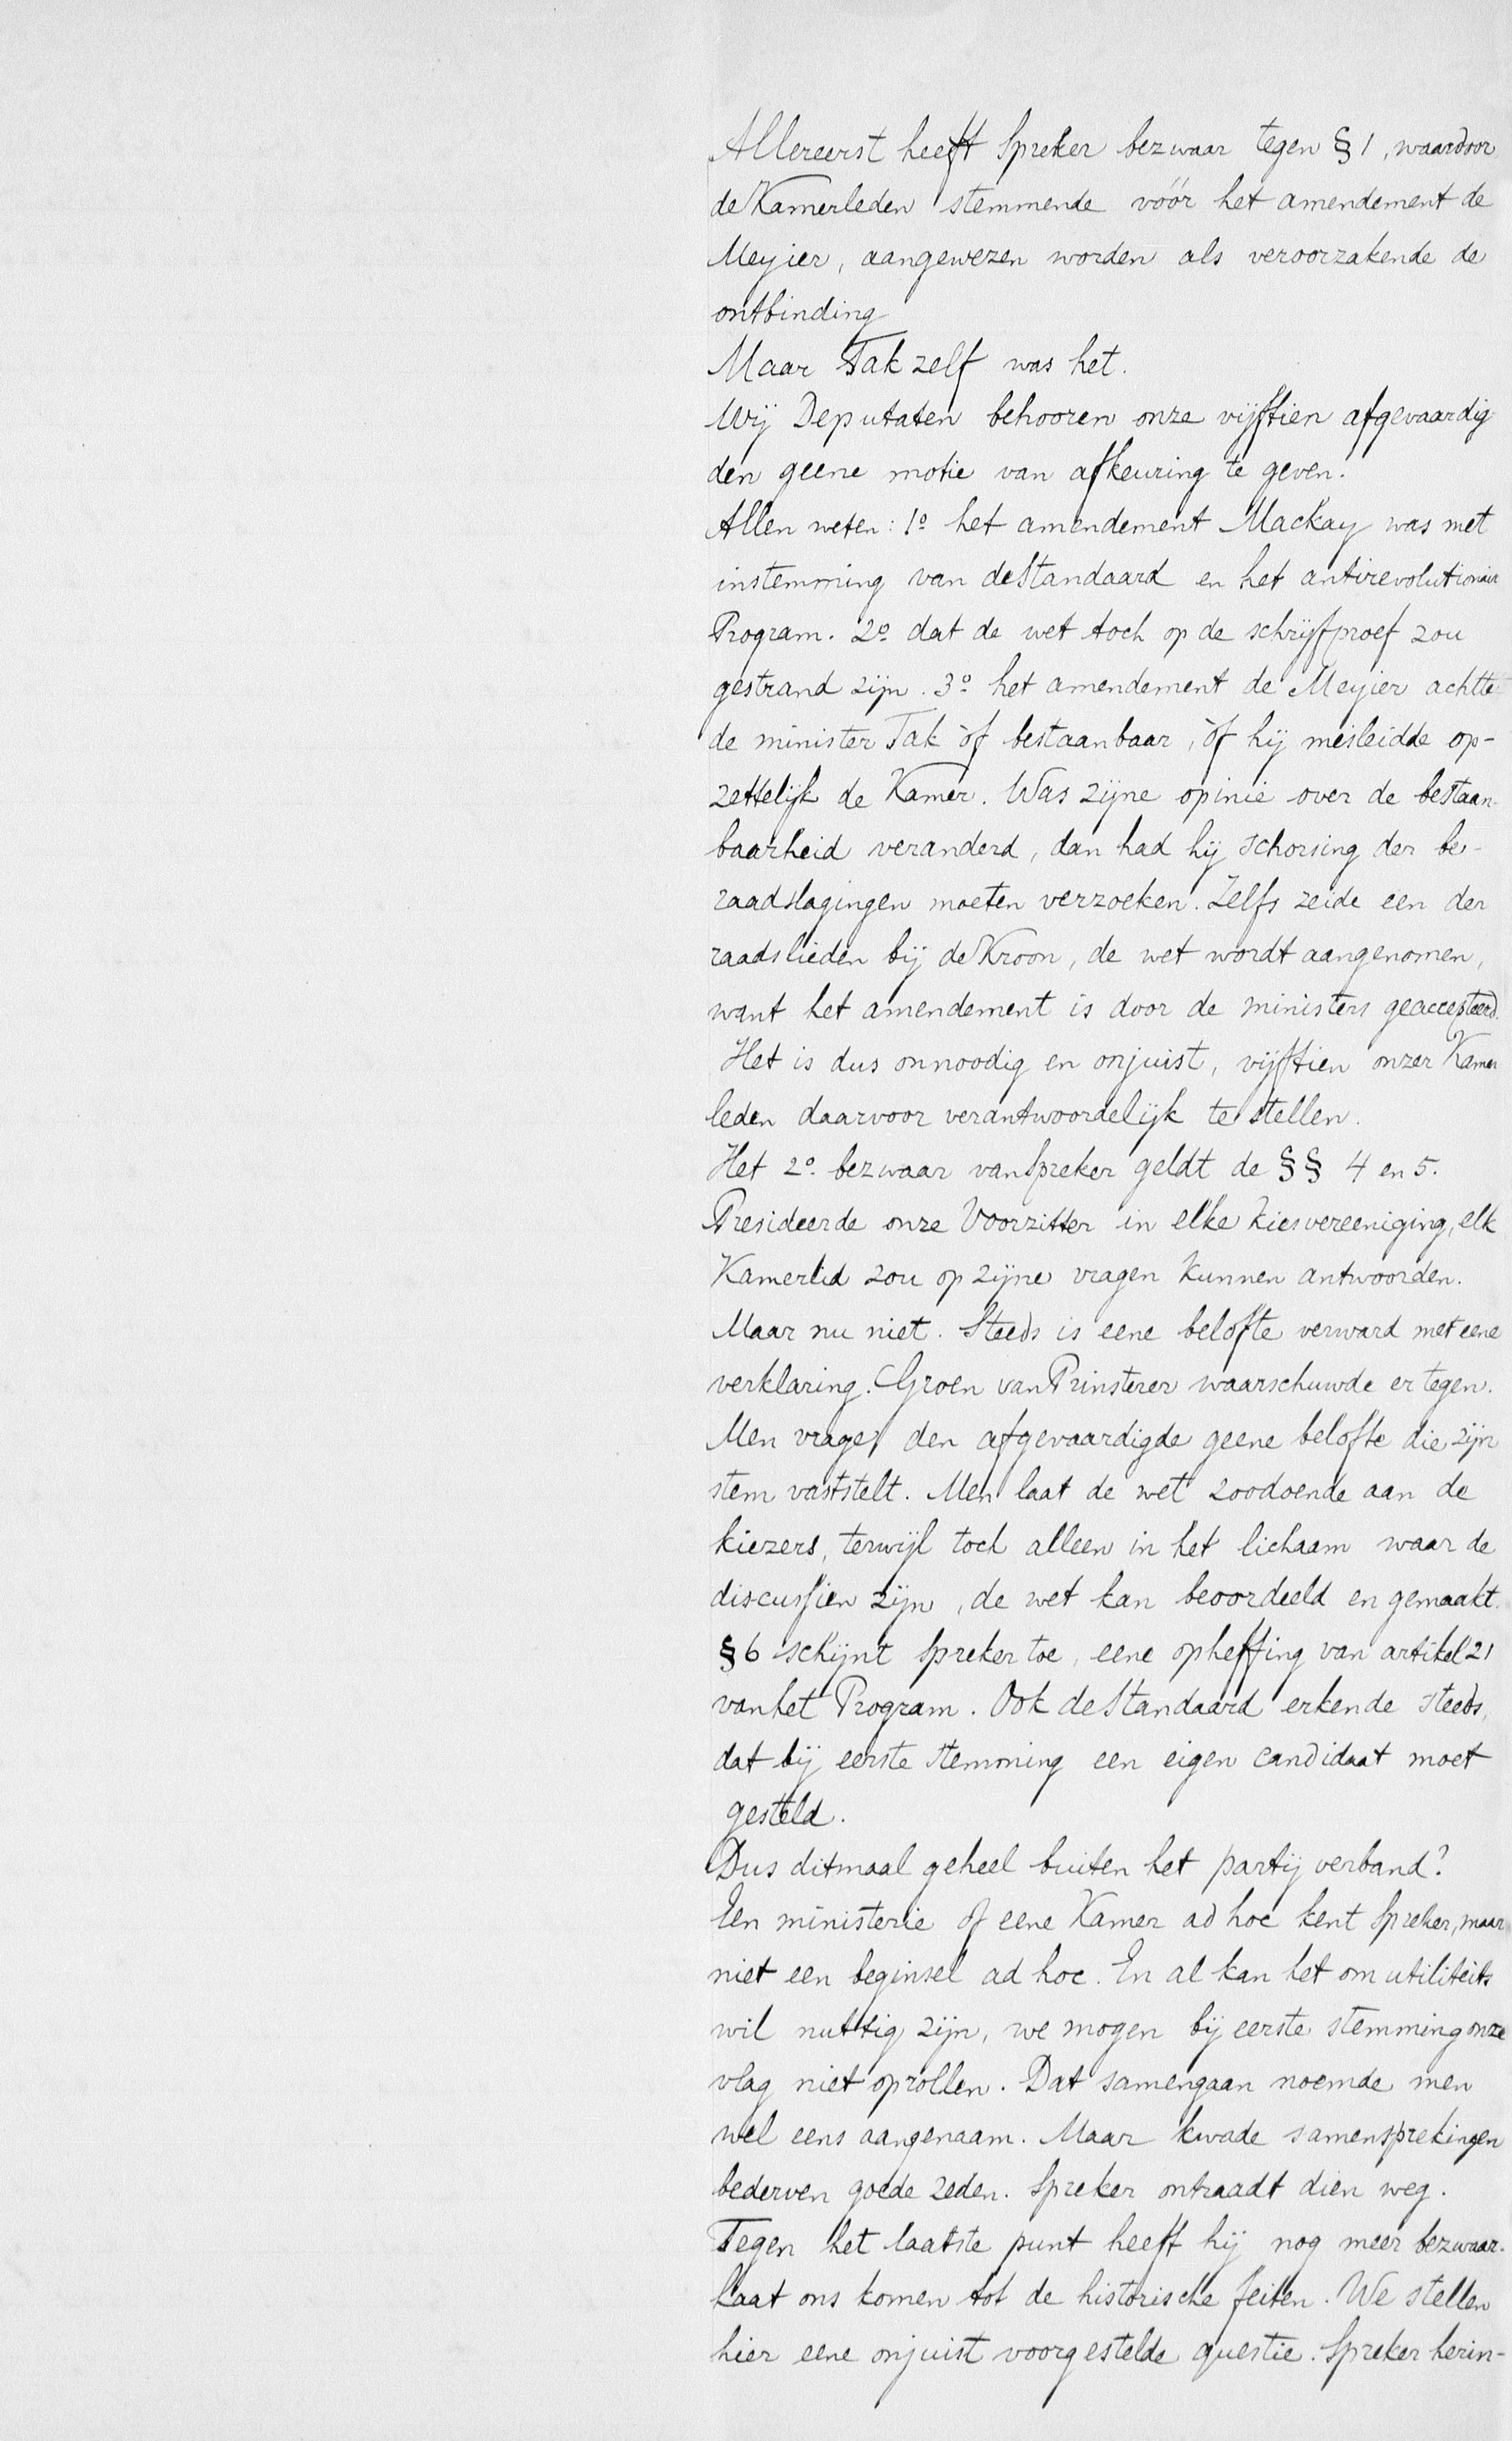 Allereerst heeft Spreker bezwaar tegen § 1, waardoor
de Kamerleden stemmende vóór het amendement de
Meyier, aangewezen worden als veroorzakende de
ontbinding
Maar Tak zelf was het.
Wij Deputaten behooren onze vijftien afgevaardig
den geene motie van afkeuring te geven.
Allen weten: 1º het amendement Mackay was met
instemming van de Standaard en het antirevolutionair
Program. 2º dat de wet toch op de schrijfproef zou
gestrand zijn. 3º het amendement de Meyier achtte
de minister Tak òf bestaanbaar, òf hij misleidde op-
zettelijk de Kamer. Was zijne opinie over de bestaan-
baarheid veranderd, dan had hij schorsing der be-
raadslagingen moeten verzoeken. Zelfs zeide een der
raadslieden bij de Kroon, de wet wordt aangenomen,
want het amendement is door de ministers geaccepteerd.
Het is dus onnoodig en onjuist, vijftien onzer Kamer
leden daarvoor verantwoordelijk te stellen.
Het 2º bezwaar van Spreker geldt de §§ 4 en 5.
Presideerde onze Voorzitter in elke kiesvereeniging, elk
Kamerlid zou op zijne vragen kunnen antwoorden.
Maar nu niet. Steeds is eene belofte verward met eene
verklaring. Groen van Prinsterer waarschuwde er tegen.
Men vrage den afgevaardigde geene belofte die zijn
stem vaststelt. Men laat de wet zoodoende aan de
kiezers, terwijl toch alleen in het lichaam waar de
discussien zijn, de wet kan beoordeeld en gemaakt.
§ 6 schijnt Spreker toe, eene opheffing van artikel 21
van het Program. Ook de Standaard erkende steeds,
dat bij eerste stemming een eigen candidaat moet
gesteld.
Dus ditmaal geheel buiten het partij verband?
Een ministerie of eene Kamer ad hoc kent Spreker, maar
niet een beginsel ad hoc. En al kan het om utiliteits
wil nuttig zijn, we mogen bij eerste stemming onze
vlag niet oprollen. Dat samengaan noemde men
wel eens aangenaam. Maar kwade samensprekingen
bederven goede zeden. Spreker ontraadt dien weg.
Tegen het laatste punt heeft hij nog meer bezwaar.
Laat ons komen tot de historische feiten. We stellen
hier eene onjuist voorgestelde questie. Spreker herin-